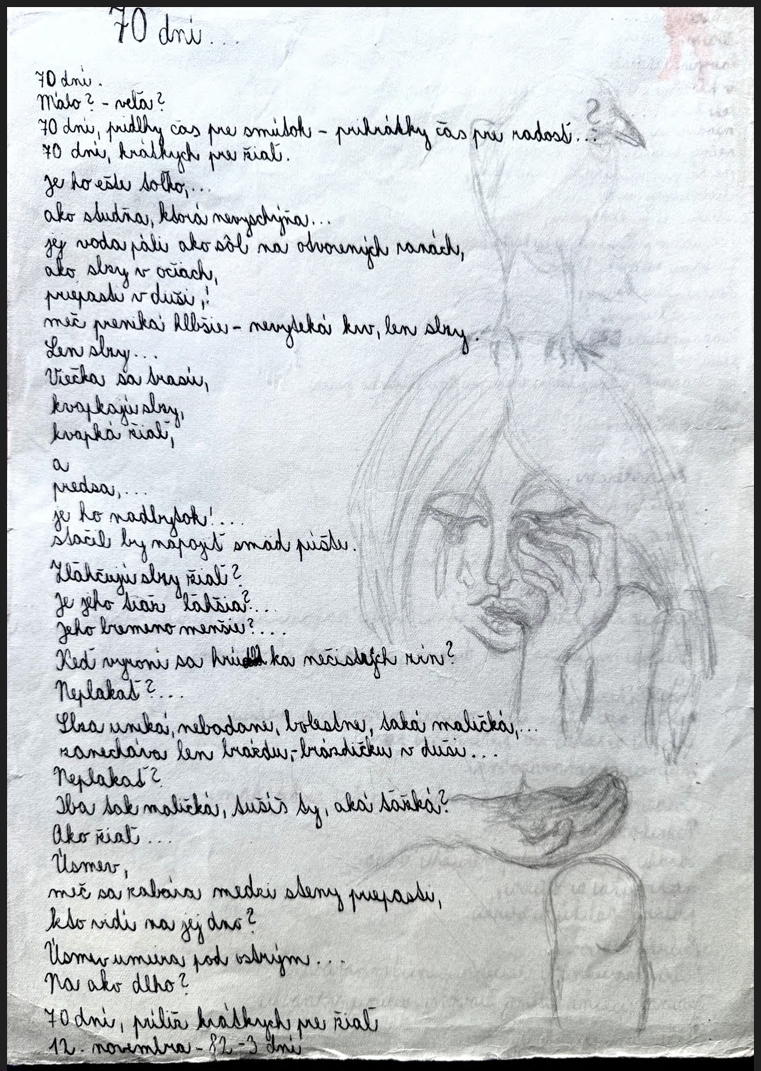 70 dni...
70 dni.
Málo? - veľa?
70 dni, pridlhy čas pre smútok - prikrátky čas pre radosť...?
70 dni, krátkych pre žiaľ.
Je ho ešte toľko,...
ako studňa, ktorá nevyschýňa...
jej voda páli ako sôľ na otvorených ranách,
ako slzy v očiach,
priepasti v duši,!
meč preniká hlbšie - nevyteká krv, len slzy.
Len slzy...
Viečka sa trasú,
kvapkajú slzy,
kvapká žiaľ,
a
predsa,...
je ho nadbytok!...
stačil by napojiť smäd púšte.
Zľahčujú slzy žiaľ?
Je jeho tiaž ľahšia?...
Jeho bremeno menšie?...
Keď vyroní sa hŕs ka nečistých rín?
Neplakať?...
Slza uniká, nebadane, bolestne, taká maličká,...
zanecháva len brázdu,-brázdičku v duši...
Neplakať?
Iba tak maličká, tušíš ty, aká ťažká?
Ako žiaľ...
Úsmev,
meč sa zabára medzi steny priepasti,
kto vidí na jej dno?
Úsmev umiera pod ostrým...
Na ako dlho?
70 dni, príliš krátkych pre žiaľ
12. novembra - 82 - 3 dni